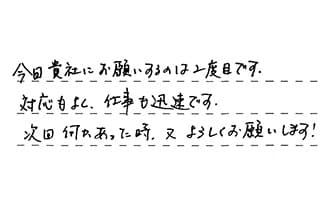 今回貴社にお願いするのは2度目です.
対応もよく、仕事も迅速です.
次回何かあった時、又よろしくお願いします!